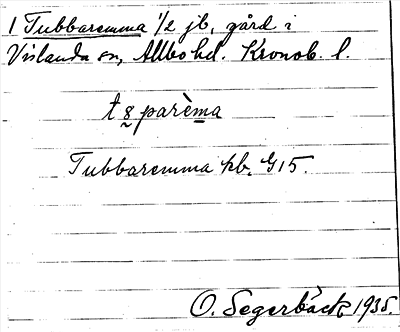 1 Tubbaremma 1/2 jb, gård i
Vislanda sn, Allbo hd. Kronob. l.
t 8 parèma
Tubbaremma kb. G 15.
O. Segerbäck 1935.